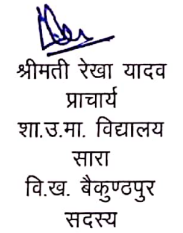 श्रीमती रेखा यादव
प्राचार्य
शा.उ.मा. विद्यालय
सारा
वि.ख. बैकुण्ठपुर
सदस्य